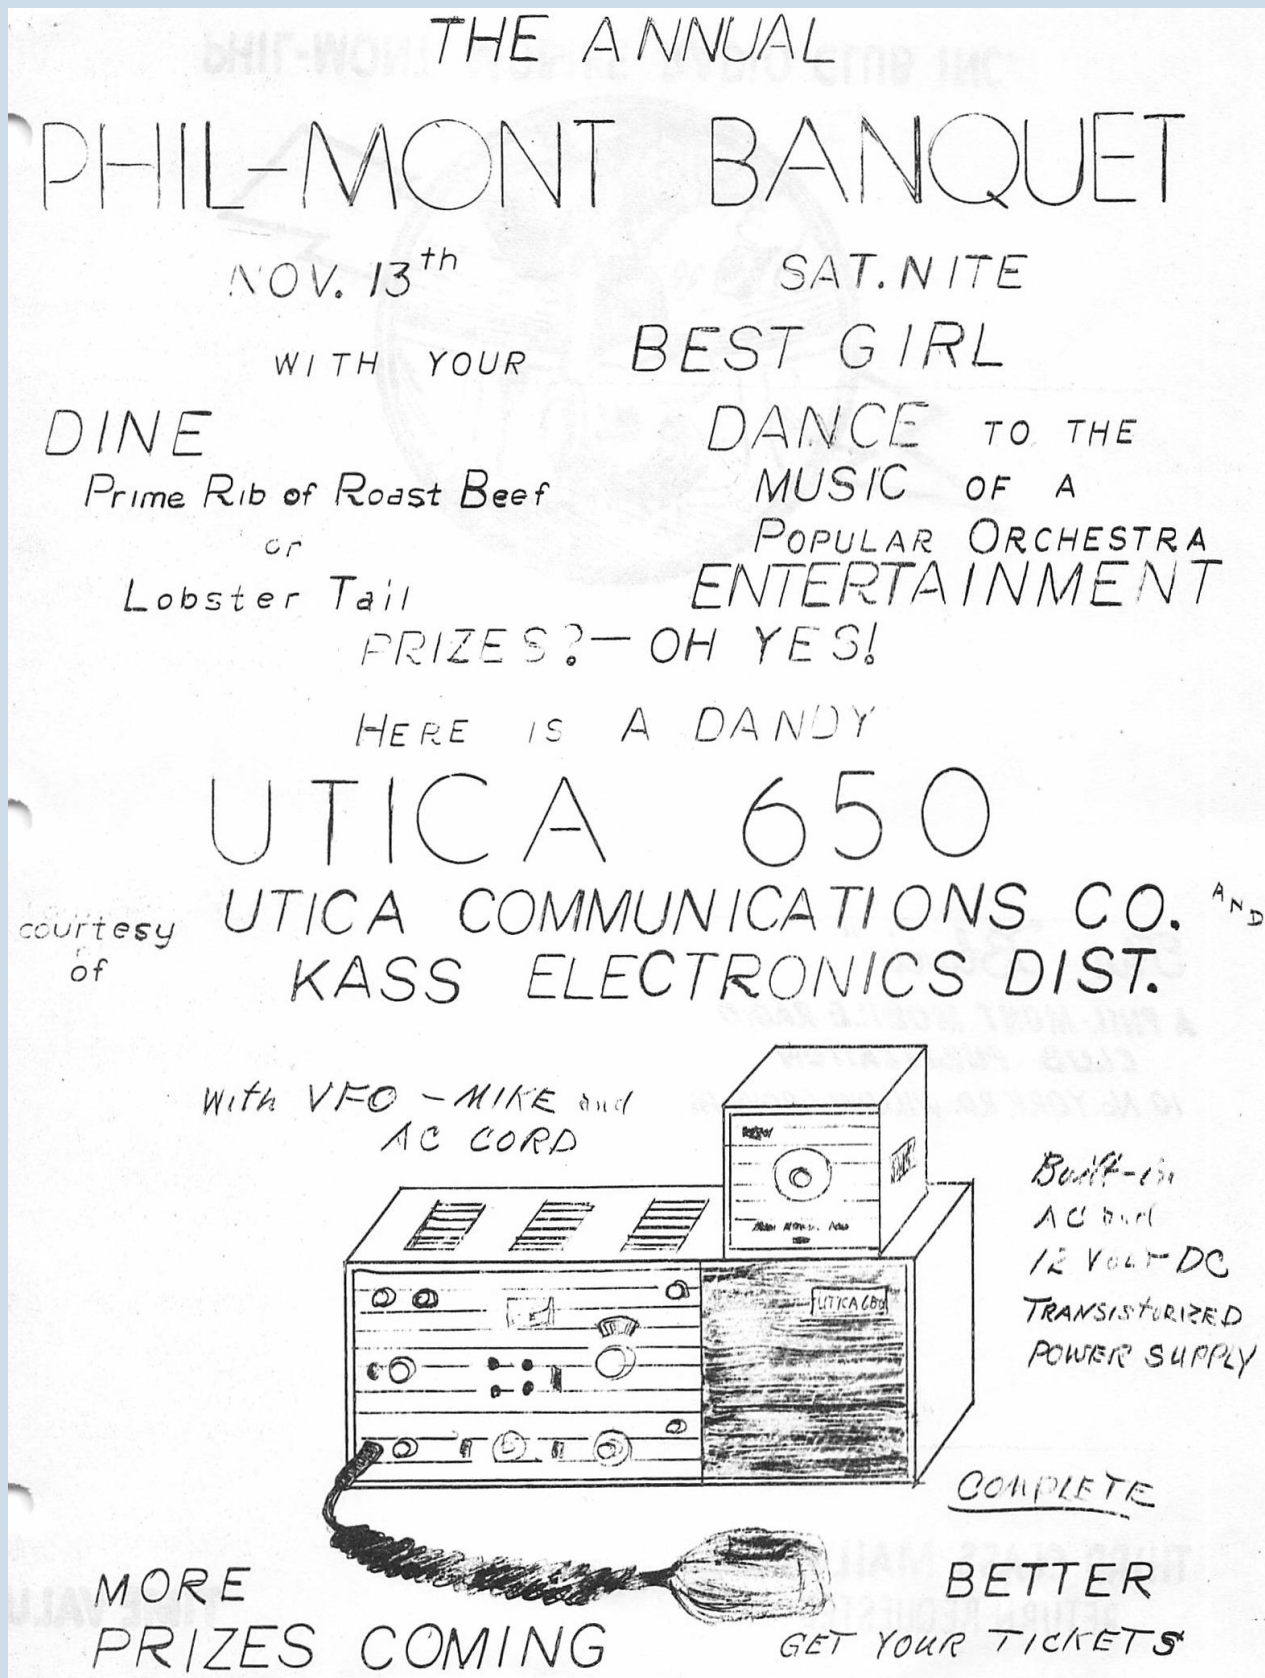 THE ANNUAL
PHIL-MONT BANQUET
NOV. 13th SAT. NITE
WITH YOUR BEST GIRL
DINE
Prime Rib of Roast Beef
or
Lobster Tail
DANCE TO THE
MUSIC OF A
POPULAR ORCHESTRA
ENTERTAINMENT
PRIZES? — OH YES!
HERE IS A DANDY
UTICA 650
courtesy of
UTICA COMMUNICATIONS CO. AND
KASS ELECTRONICS DIST.
With VFO - MIKE and
AC CORD
Built-in
AC and
12 VOLT DC
TRANSISTORIZED
POWER SUPPLY
UTICA 650
COMPLETE
MORE
PRIZES COMING
BETTER
GET YOUR TICKETS